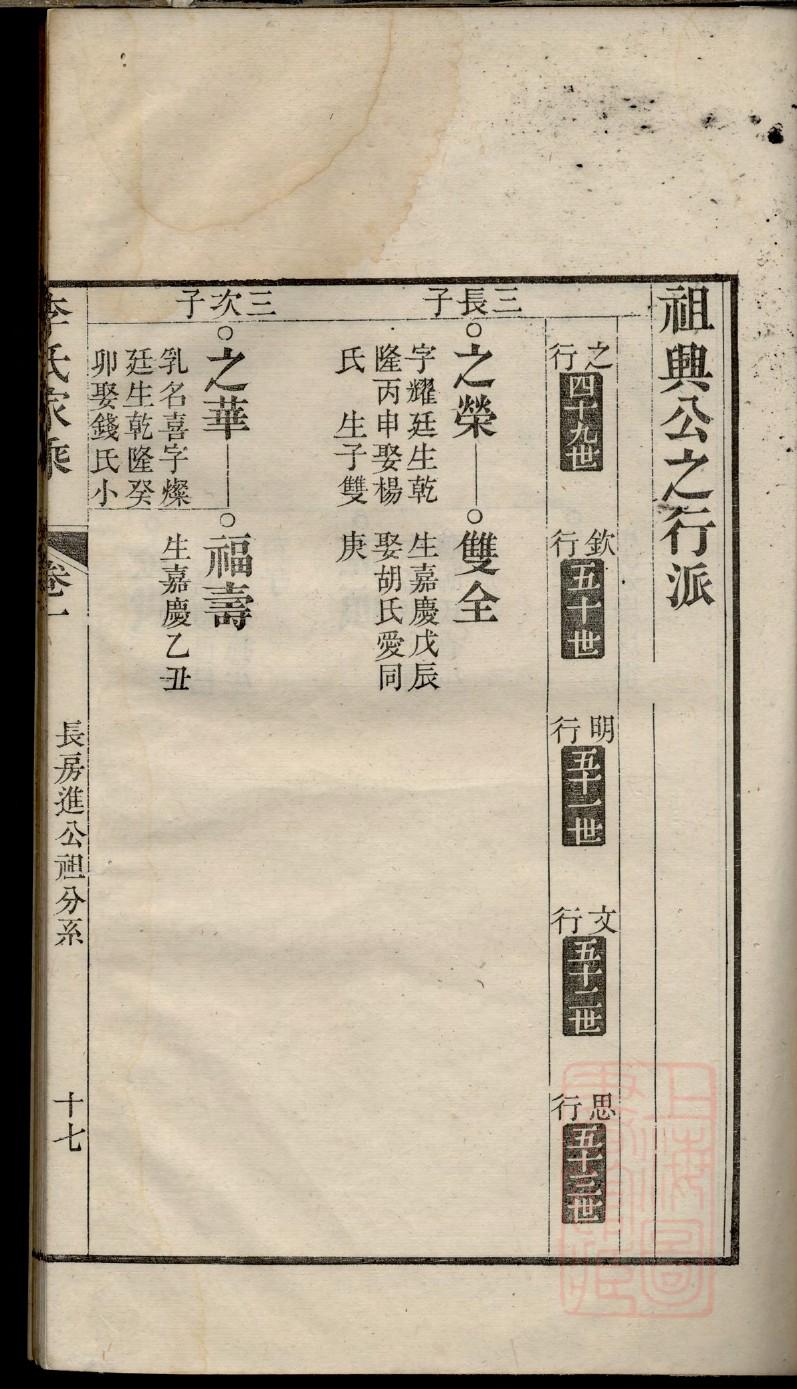 祖興公之行派
之行
四十九世
欽行
五十世
明行
五十一世
文行
五十二世
思行
五十三世
三長子
之榮
字耀廷生乾
隆丙申娶楊
氏 生子雙
雙全
生嘉慶戊辰
娶胡氏愛同
庚
三次子
之華
乳名喜字燦
廷生乾隆癸
卯娶錢氏小
福壽
生嘉慶乙丑
李氏家乘
卷一
長房進公祖分系
十七